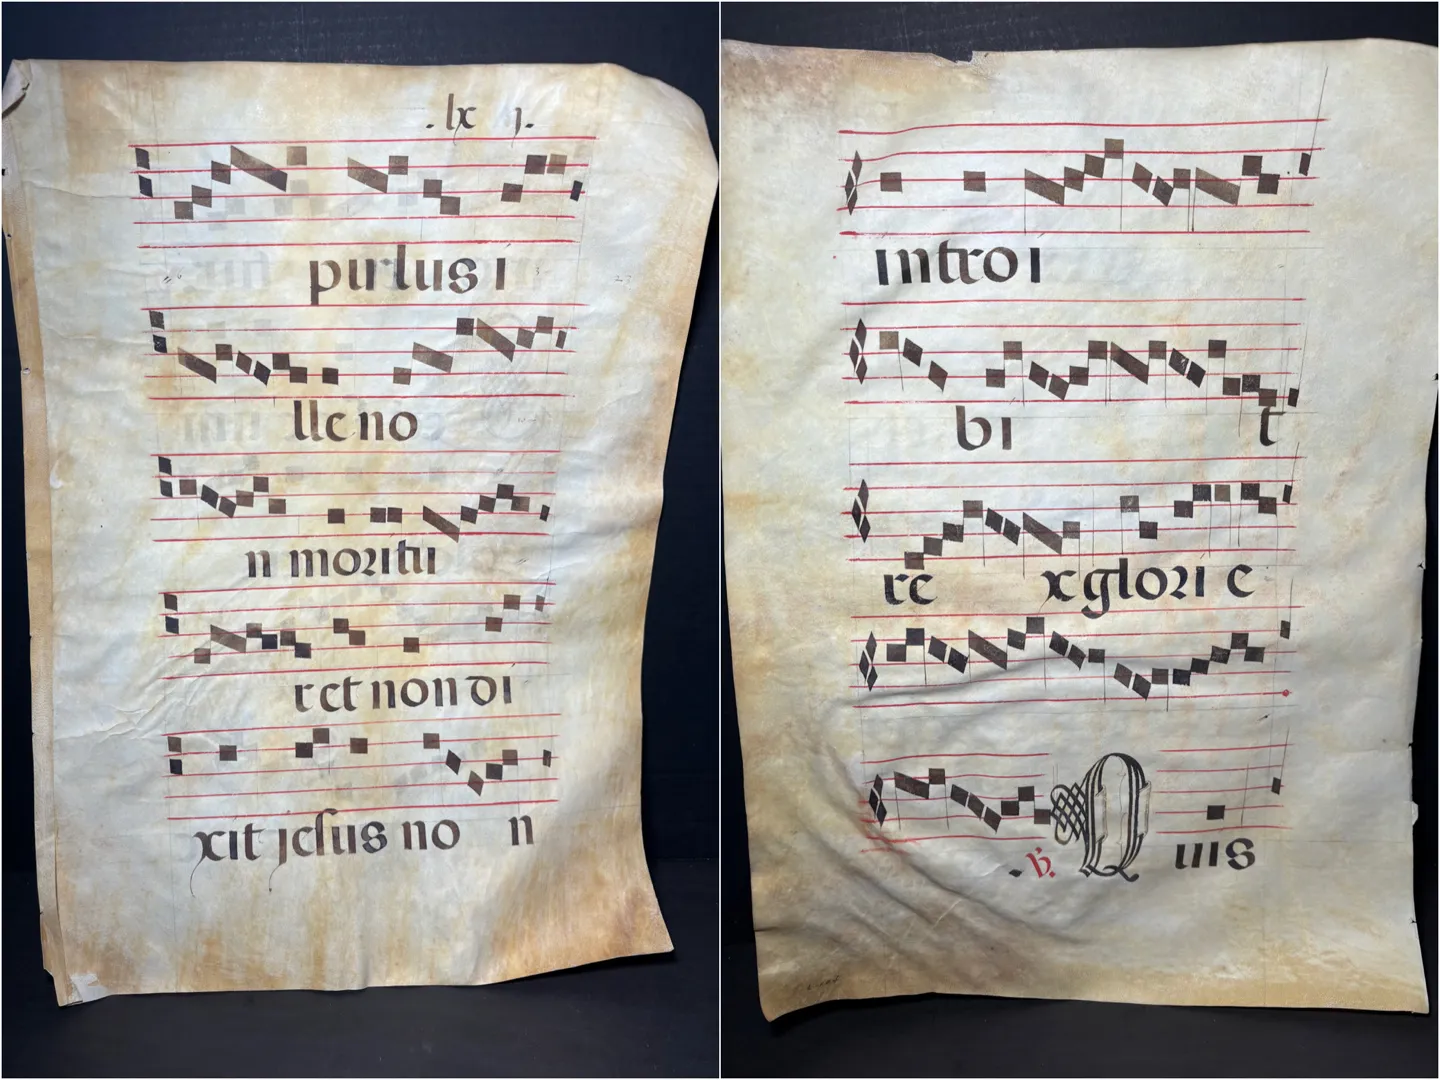 . lx j.
pulus i
lle no
n moritu
ret non di
xit jesus no n
introi
bi t
re x glori e
. v. Q uis